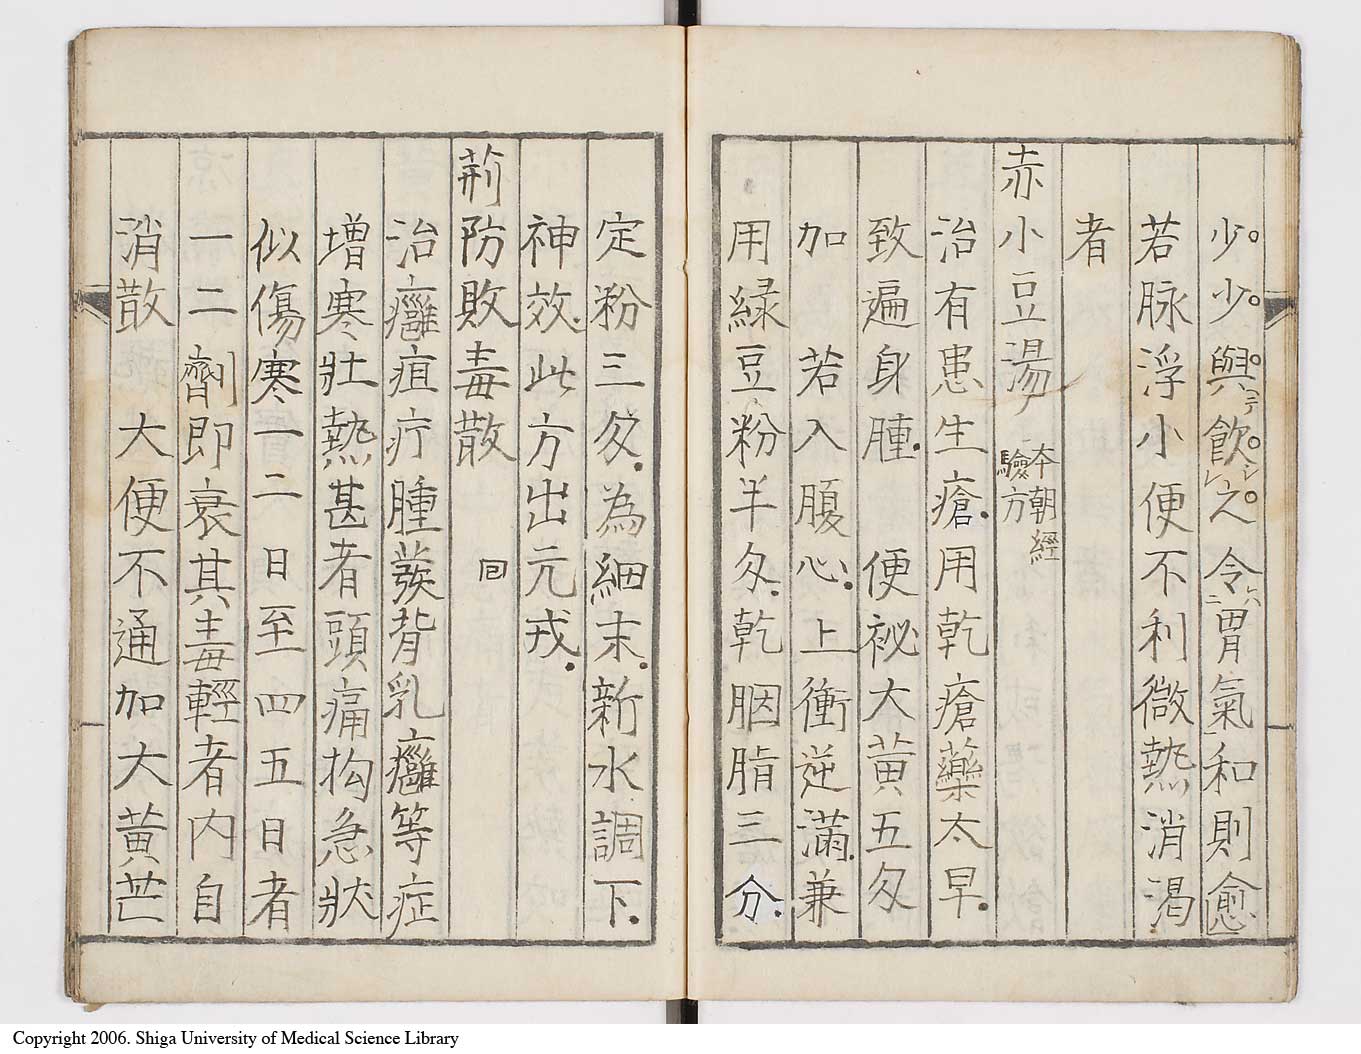 少少與飲之令胃氣和則愈
若脉浮小便不利微熱消渇
者
赤小豆湯 本朝經驗方
治有患生瘡用乾瘡藥太早
致遍身腫 便祕大黄五匁
加 若入腹心上衝逆滿兼
用緑豆粉半匁乾胭脂三分
定粉三匁為細末新水調下
神效此方出元戎
荊防敗毒散 回
治癰疽疔腫發背乳癰等症
増寒壮熱甚者頭痛拘急状
似傷寒一二日至四五日者
一二劑即衰其毒輕者内自
消散 大便不通加大黄芒
Copyright 2006. Shiga University of Medical Science Library